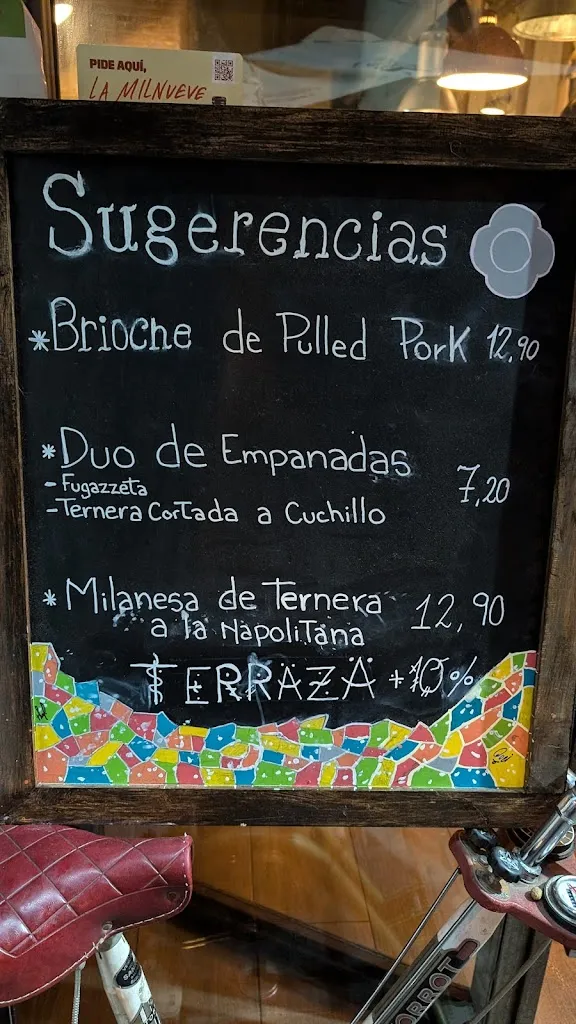 PIDE AQUÍ,
LA MILNUEVE
Sugerencias
*Brioche de Pulled Pork 12,90
*Duo de Empanadas
- Fugazzeta
7,20
-Ternera Cortada a Cuchillo
*Milanesa de Ternera 12,90
a la Napolitana
TERRAZA +10%